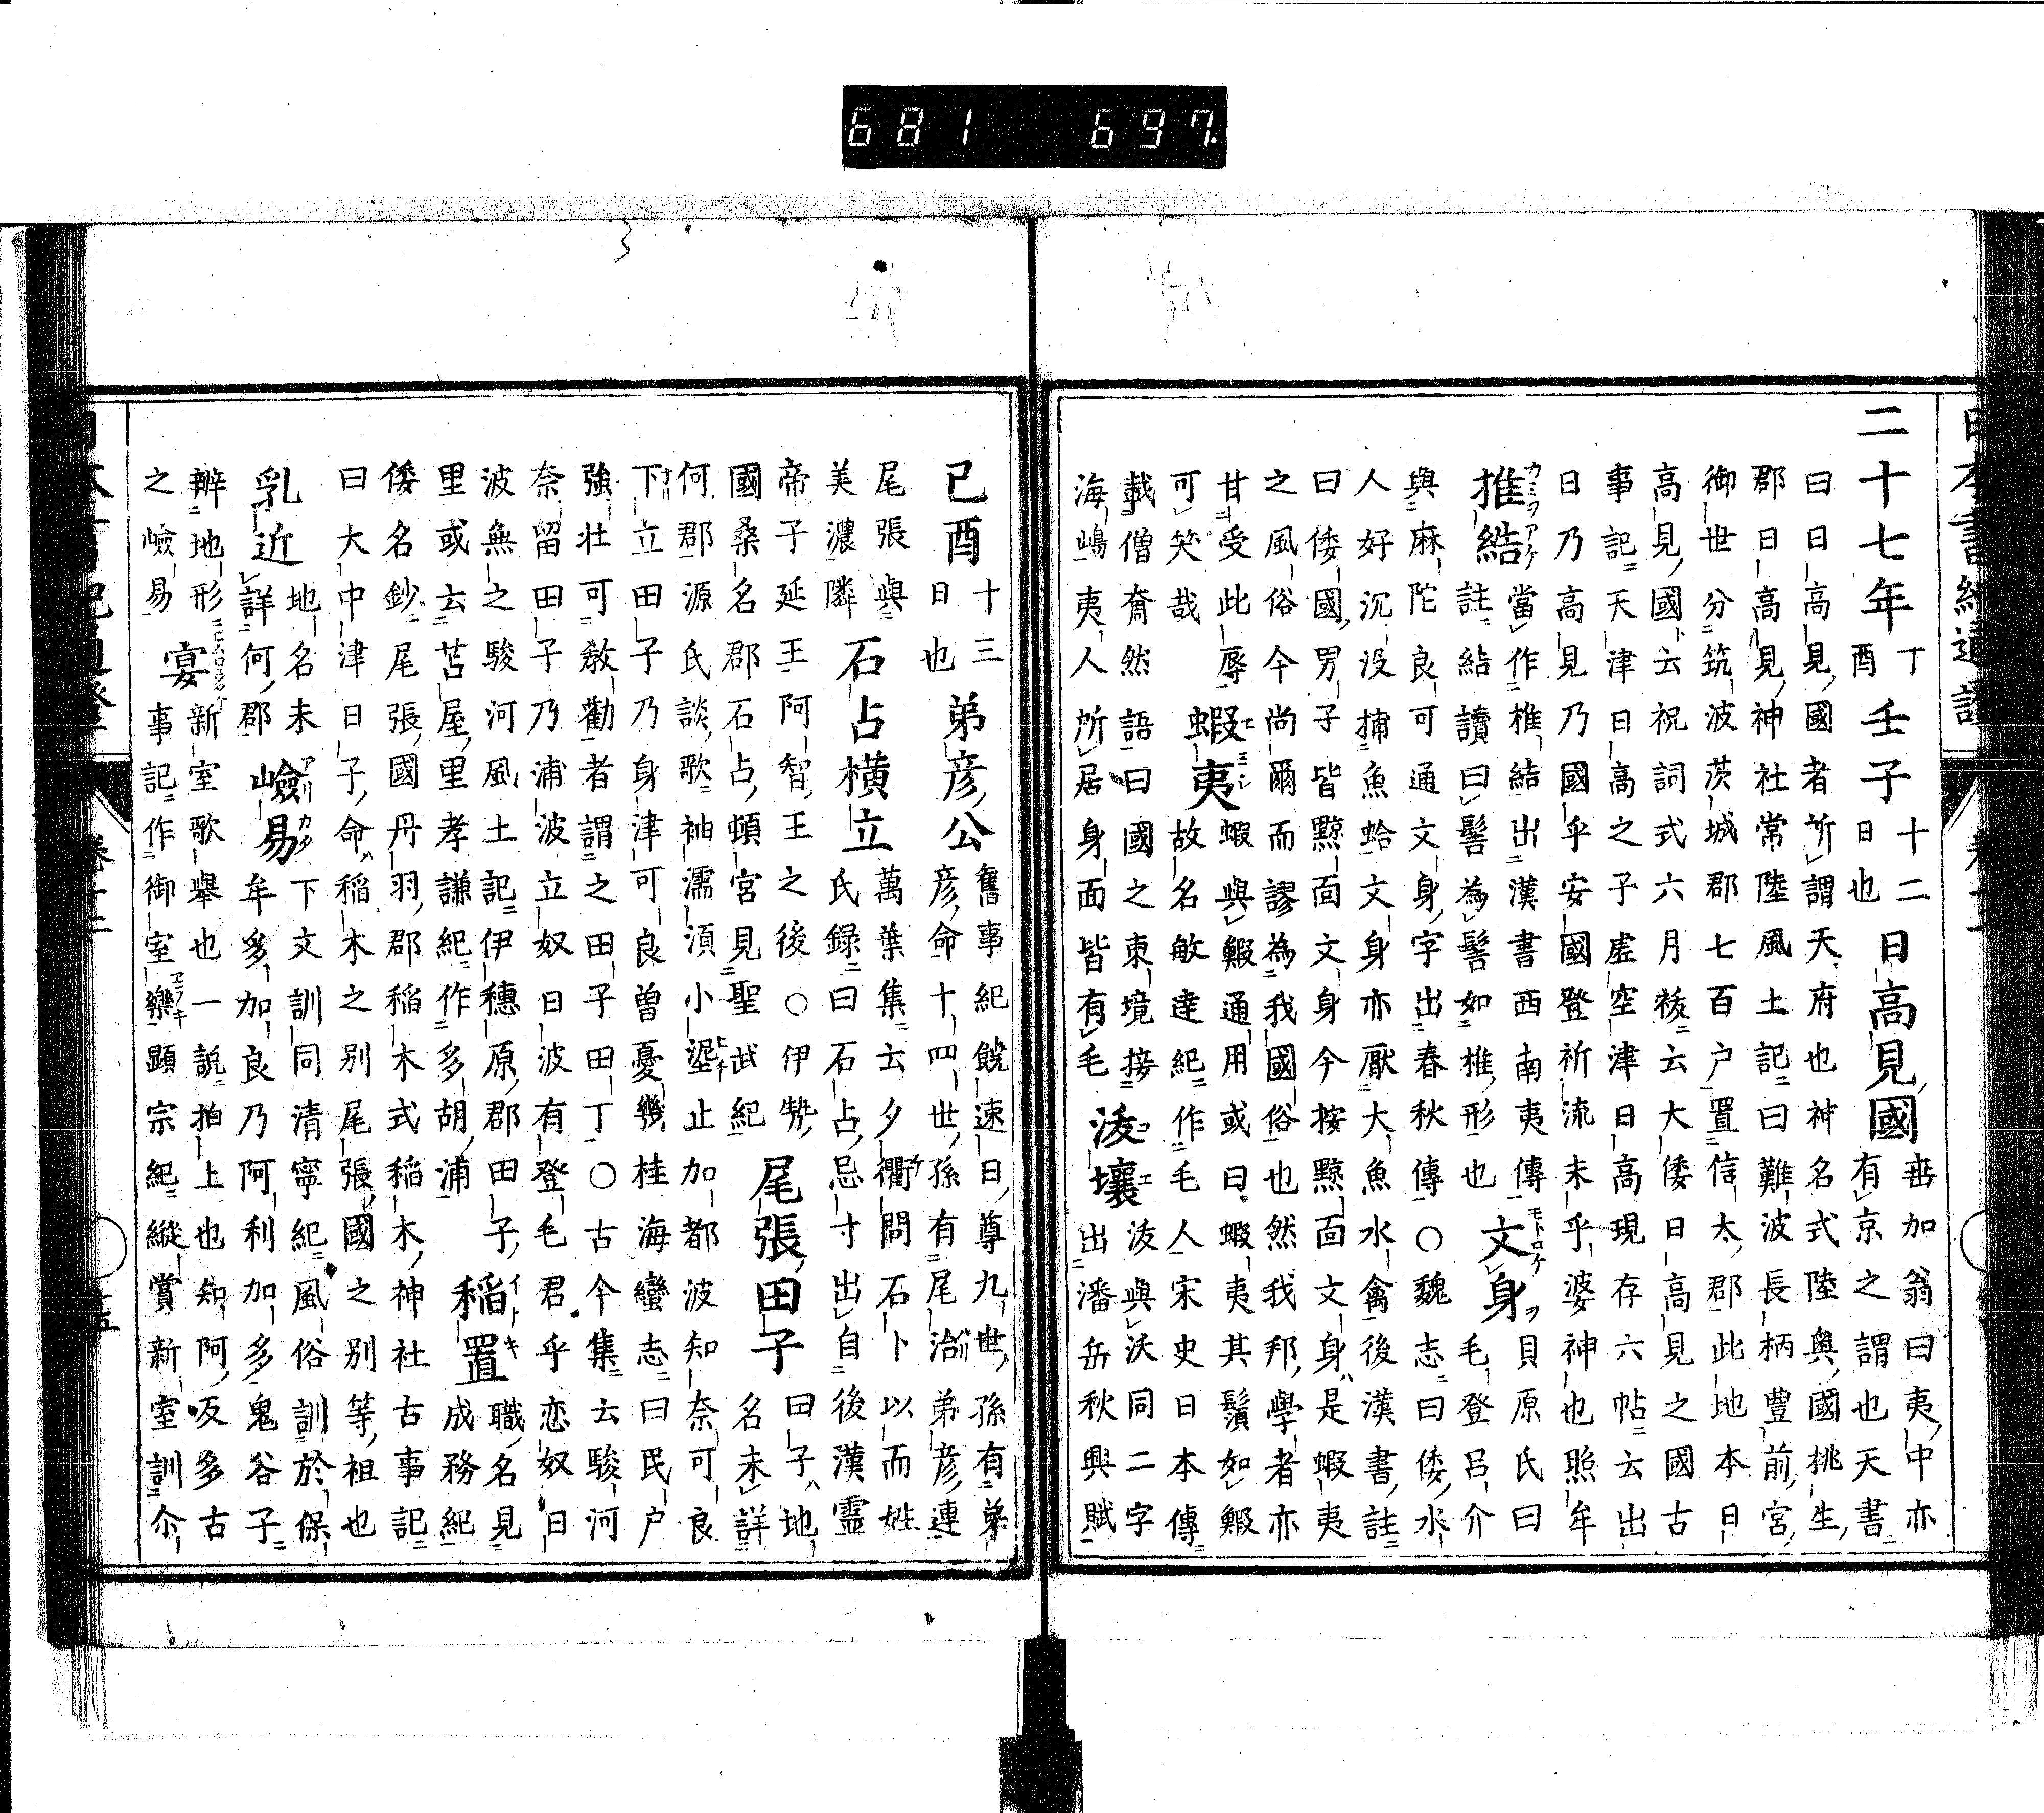 681 697
二十七年丁酉壬子十二日也日高見國毋加翁曰夷中亦有京之謂也天書
曰日高見國者所謂天府也神名式陸奥國桃生
郡日高見神社常陸風土記曰難波長柄豐前宮
御世分筑波茨城郡七百户置信太郡此地本日
高見國卜云祝詞式六月祓云大倭日高見之國古
事記天津日高之子虚空津日高現存六帖云出
日乃高見乃國乎安國登祈流未乎婆神也照牟
推結カミヲアケ當作椎結出漢書西南夷傳註結讀曰髻為髻如椎形也文身モトロケヲ貝原氏曰毛登呂介
與麻陀良可通文身字出春秋傳○魏志曰倭水
人好沉没捕魚蛤文身亦厭大魚水禽後漢書註
曰倭國男子皆黥面文身今按黥面文身是蝦夷
之風俗今尚爾而謬為我國俗也然我邦學者亦
甘受此辱可笑哉蝦夷エミシ蝦與鰕通用或曰蝦夷其鬚如鰕故名敏達紀作毛人宋史日本傳
載僧奝然語曰國之東境接海嶋夷人所居身面皆有毛
沃壤コエ浂與沃同二字出潘岳秋興賦
已酉十三日也弟彦公舊事紀饒速日尊九世孫有弟彦命十四世孫有尾治弟彦連
尾張與美濃隣石占横立萬葉集云夕衢問石卜以而姓氏録曰石占忌寸出自後漢靈
帝子延王阿智王之後○伊勢國桑名郡石占頓宮見聖武紀尾張田子曰子地名未詳
何郡源氏談歌袖濡湏小埿止加都波知奈可良
下立田子乃身津可良曽憂幾桂海蠻志曰民户
強壮可敎勸者謂之田子田丁○古今集云駿河
奈留田子乃浦波立奴日波有登毛君乎恋奴日
波無之駿河風土記伊穗原郡田子浦稲置イナキ職名見成務紀
里或云苫屋里孝謙紀作多胡浦
倭名鈔尾張國丹羽郡稲木式稲木神社古事記
曰大中津日子命稲木之别尾張國之别等祖也
乳近地名未詳何郡嶮易アリカタ下文訓同清寧紀風俗訓於保牟多加良乃阿利加多鬼谷子
辨地形之嶮易宴ニヒムロウタケ新室歌舉也一説拍上也知阿反多古事記作御室樂顕宗紀縱賞新室訓尒
日本書紀通證
卷十二